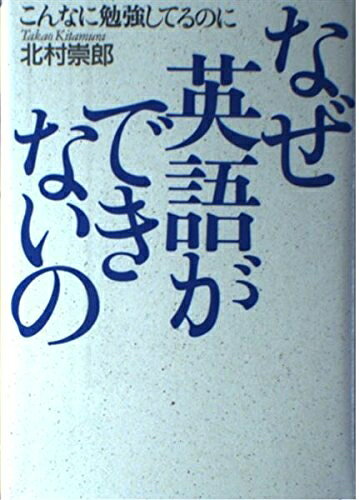 こんなに勉強してるのに
Takao Kitamura
北村崇郎
なぜ
英語が
でき
ないの